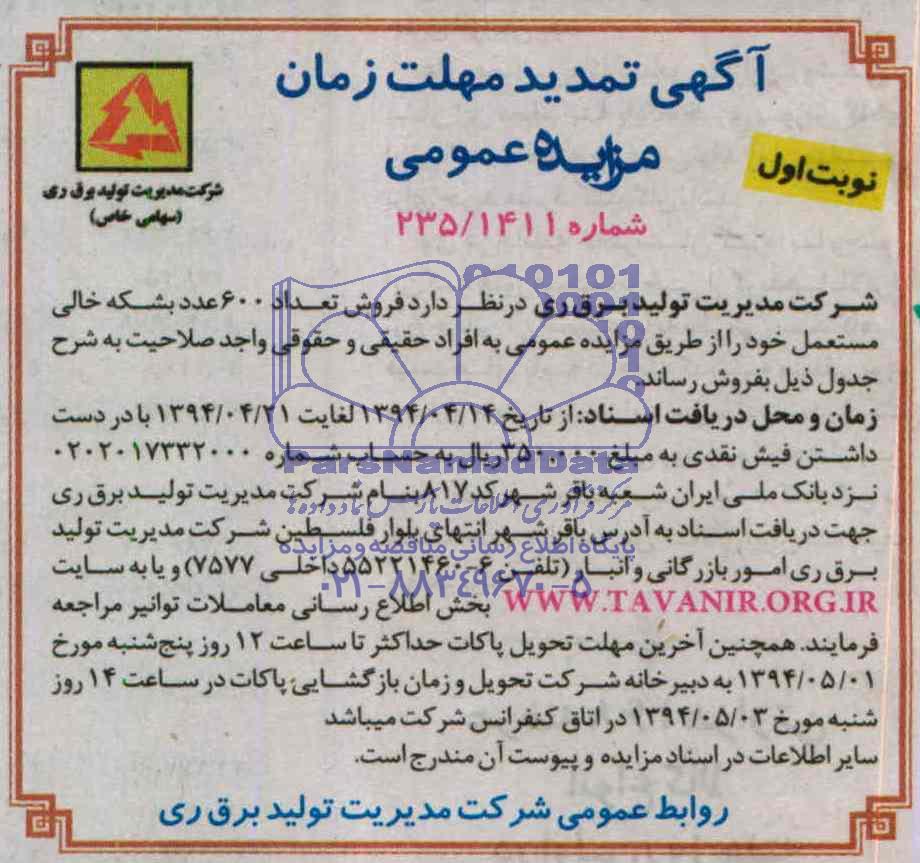 آگهی تمدید مهلت زمان
مزایده عمومی
نوبت اول
شماره ۲۳۵/۱۴۱۱
شرکت مدیریت تولید برق ری
(سهامی خاص)
شرکت مدیریت تولید برق ری درنظر دارد فروش تعداد ۶۰۰ عدد بشکه خالی
مستعمل خود را از طریق مزایده عمومی به افراد حقیقی و حقوقی واجد صلاحیت به شرح
جدول ذیل بفروش رساند.
زمان و محل دریافت اسناد: از تاریخ ۱۳۹۴/۰۴/۱۴ لغایت ۱۳۹۴/۰۴/۲۱ با در دست
داشتن فیش نقدی به مبلغ ۲۵۰۰۰۰ ریال به حساب شماره ۰۲۰۲۰۱۷۳۳۲۰۰۰
نزد بانک ملی ایران شعبه باقر شهر کد ۸۱۷ بنام شرکت مدیریت تولید برق ری
جهت دریافت اسناد به آدرس باقر شهر انتهای بلوار فلسطین شرکت مدیریت تولید
برق ری امور بازرگانی و انبار (تلفن ۶-۵۵۲۲۱۴۶۰ داخلی ۷۵۷۷) و یا به سایت
WWW.TAVANIR.ORG.IR بخش اطلاع رسانی معاملات توانیر مراجعه
فرمایند. همچنین آخرین مهلت تحویل پاکات حداکثر تا ساعت ۱۲ روز پنج‌شنبه مورخ
۱۳۹۴/۰۵/۰۱ به دبیرخانه شرکت تحویل و زمان بازگشایی پاکات در ساعت ۱۴ روز
شنبه مورخ ۱۳۹۴/۰۵/۰۳ در اتاق کنفرانس شرکت میباشد
سایر اطلاعات در اسناد مزایده و پیوست آن مندرج است.
روابط عمومی شرکت مدیریت تولید برق ری
ParsNamadData
پایگاه اطلاع رسانی مناقصه و مزایده
۰۲۱-۸۸۳۴۹۶۷۰-۵